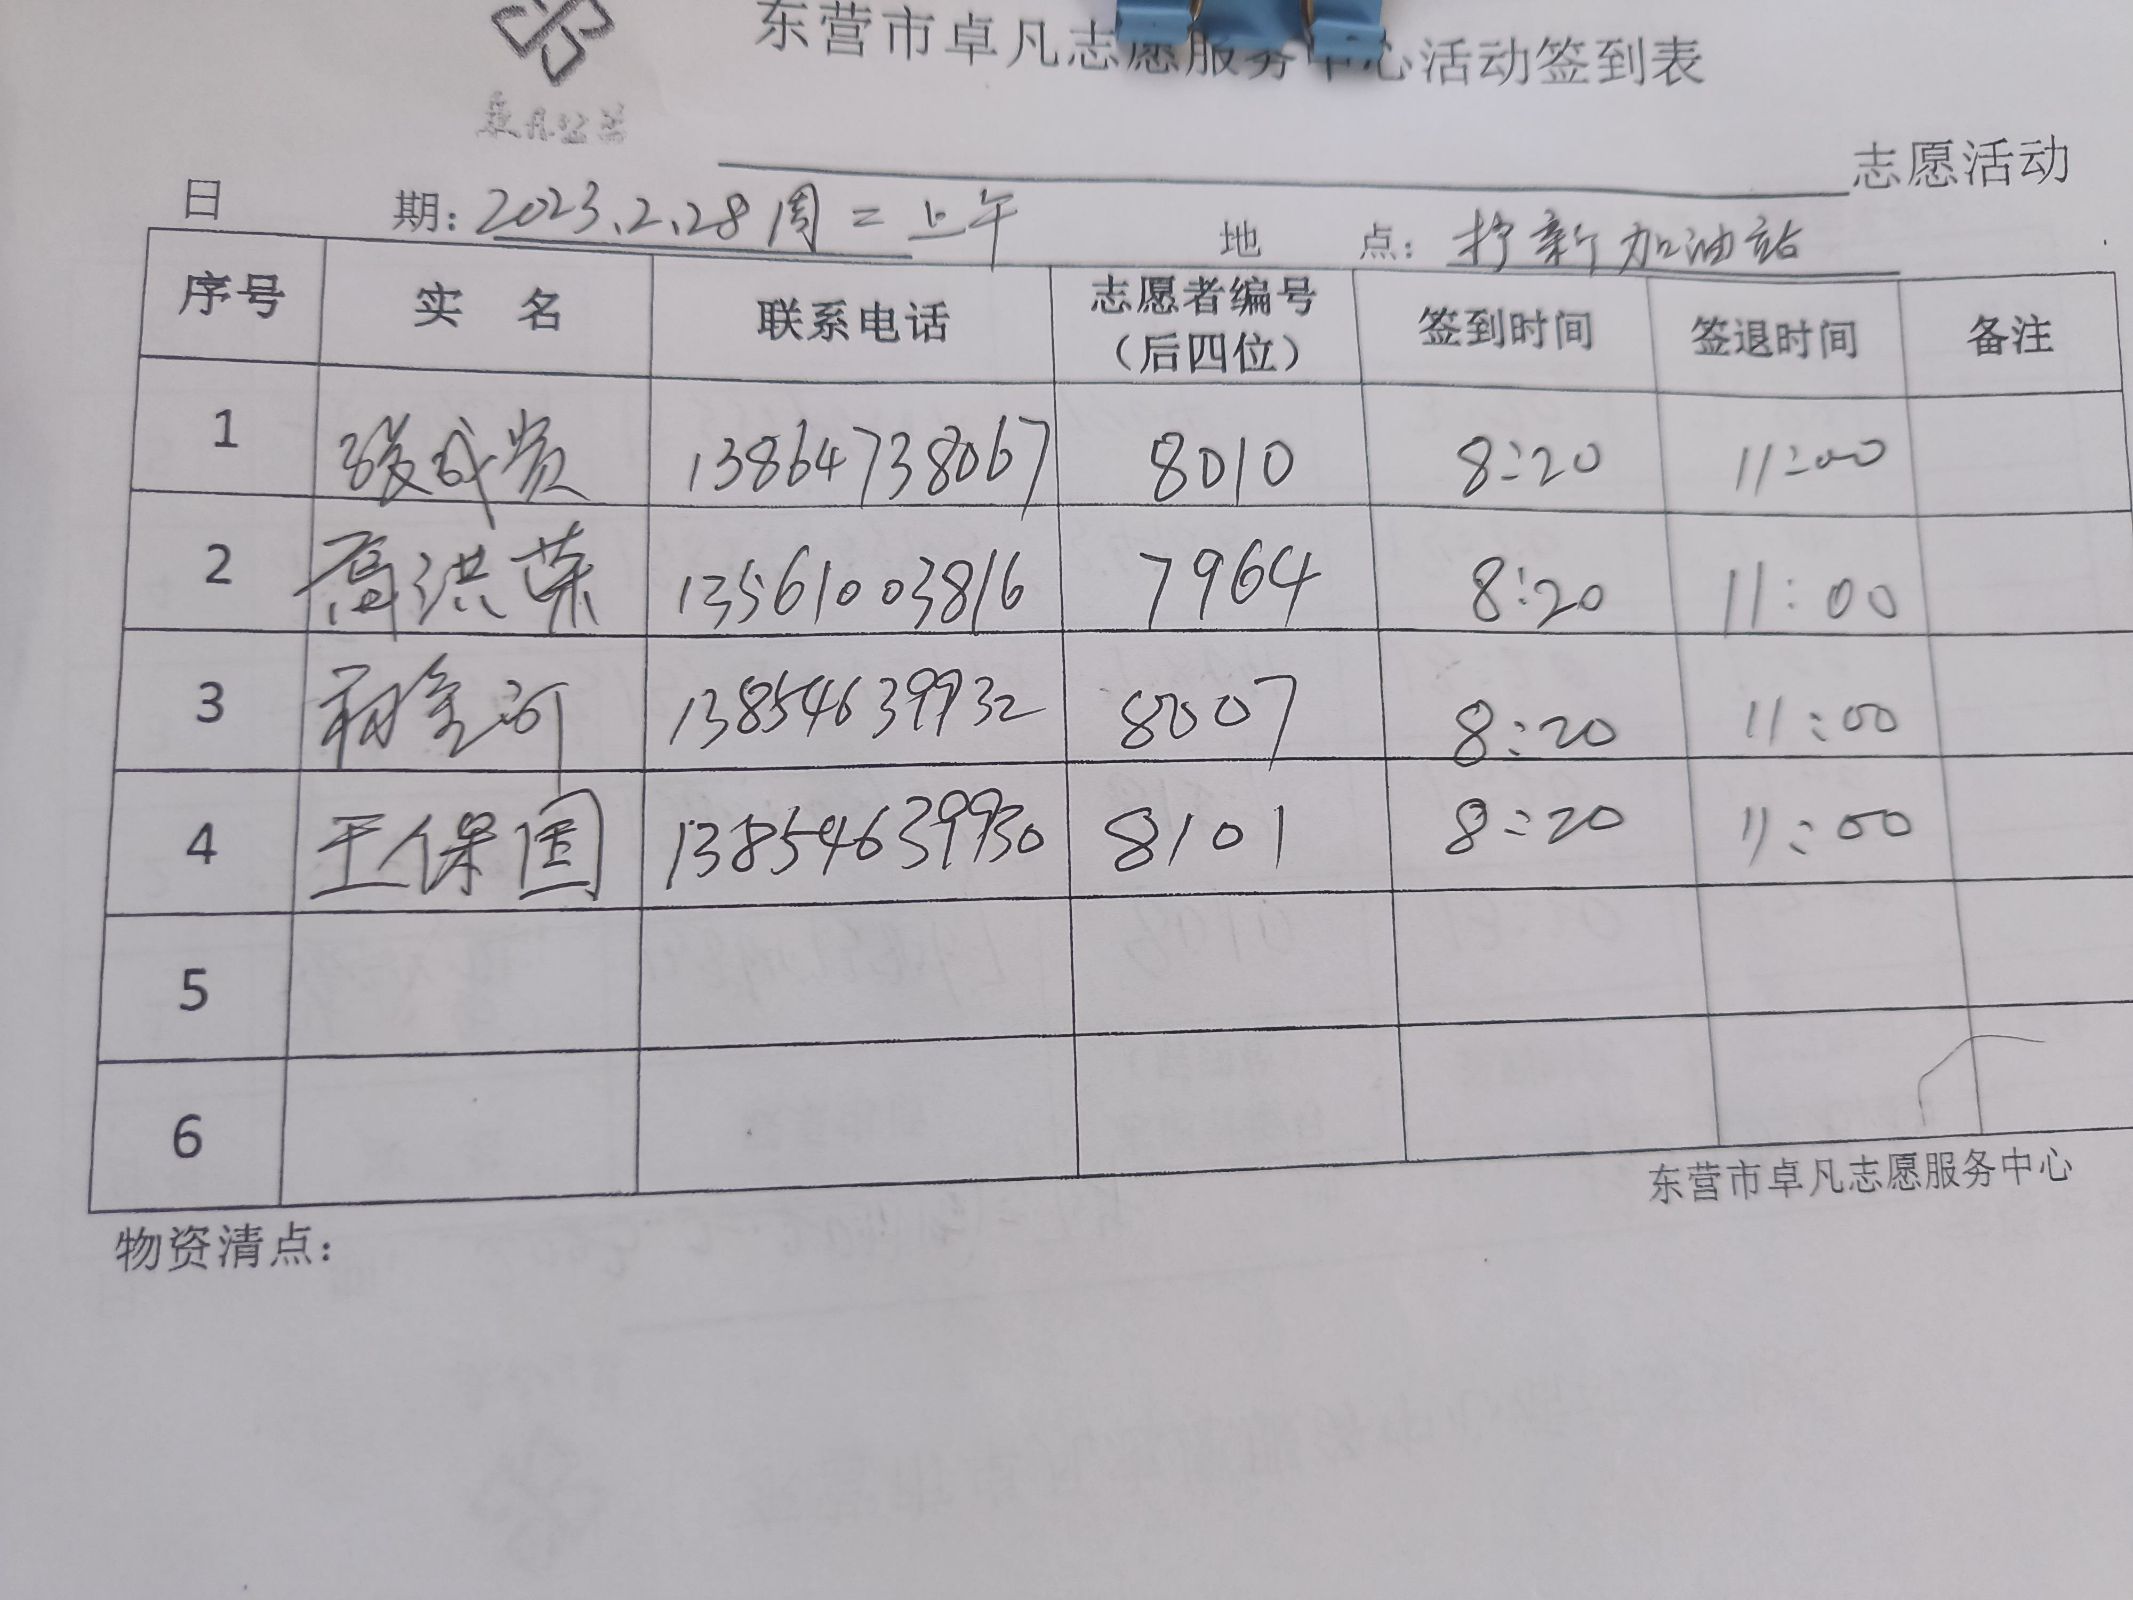 东营市卓凡志愿服务中心活动签到表
卓凡公益
志愿活动
日 期：2023.2.28周二上午 地 点：抒新加油站
序号 实 名 联系电话 志愿者编号（后四位） 签到时间 签退时间 备注
1 张成贵 13864738067 8010 8:20 11:00
2 高洪荣 13561003816 7964 8:20 11:00
3 金河 13854639932 8007 8:20 11:00
4 王保国 13854639930 8101 8:20 11:00
5
6
东营市卓凡志愿服务中心
物资清点：